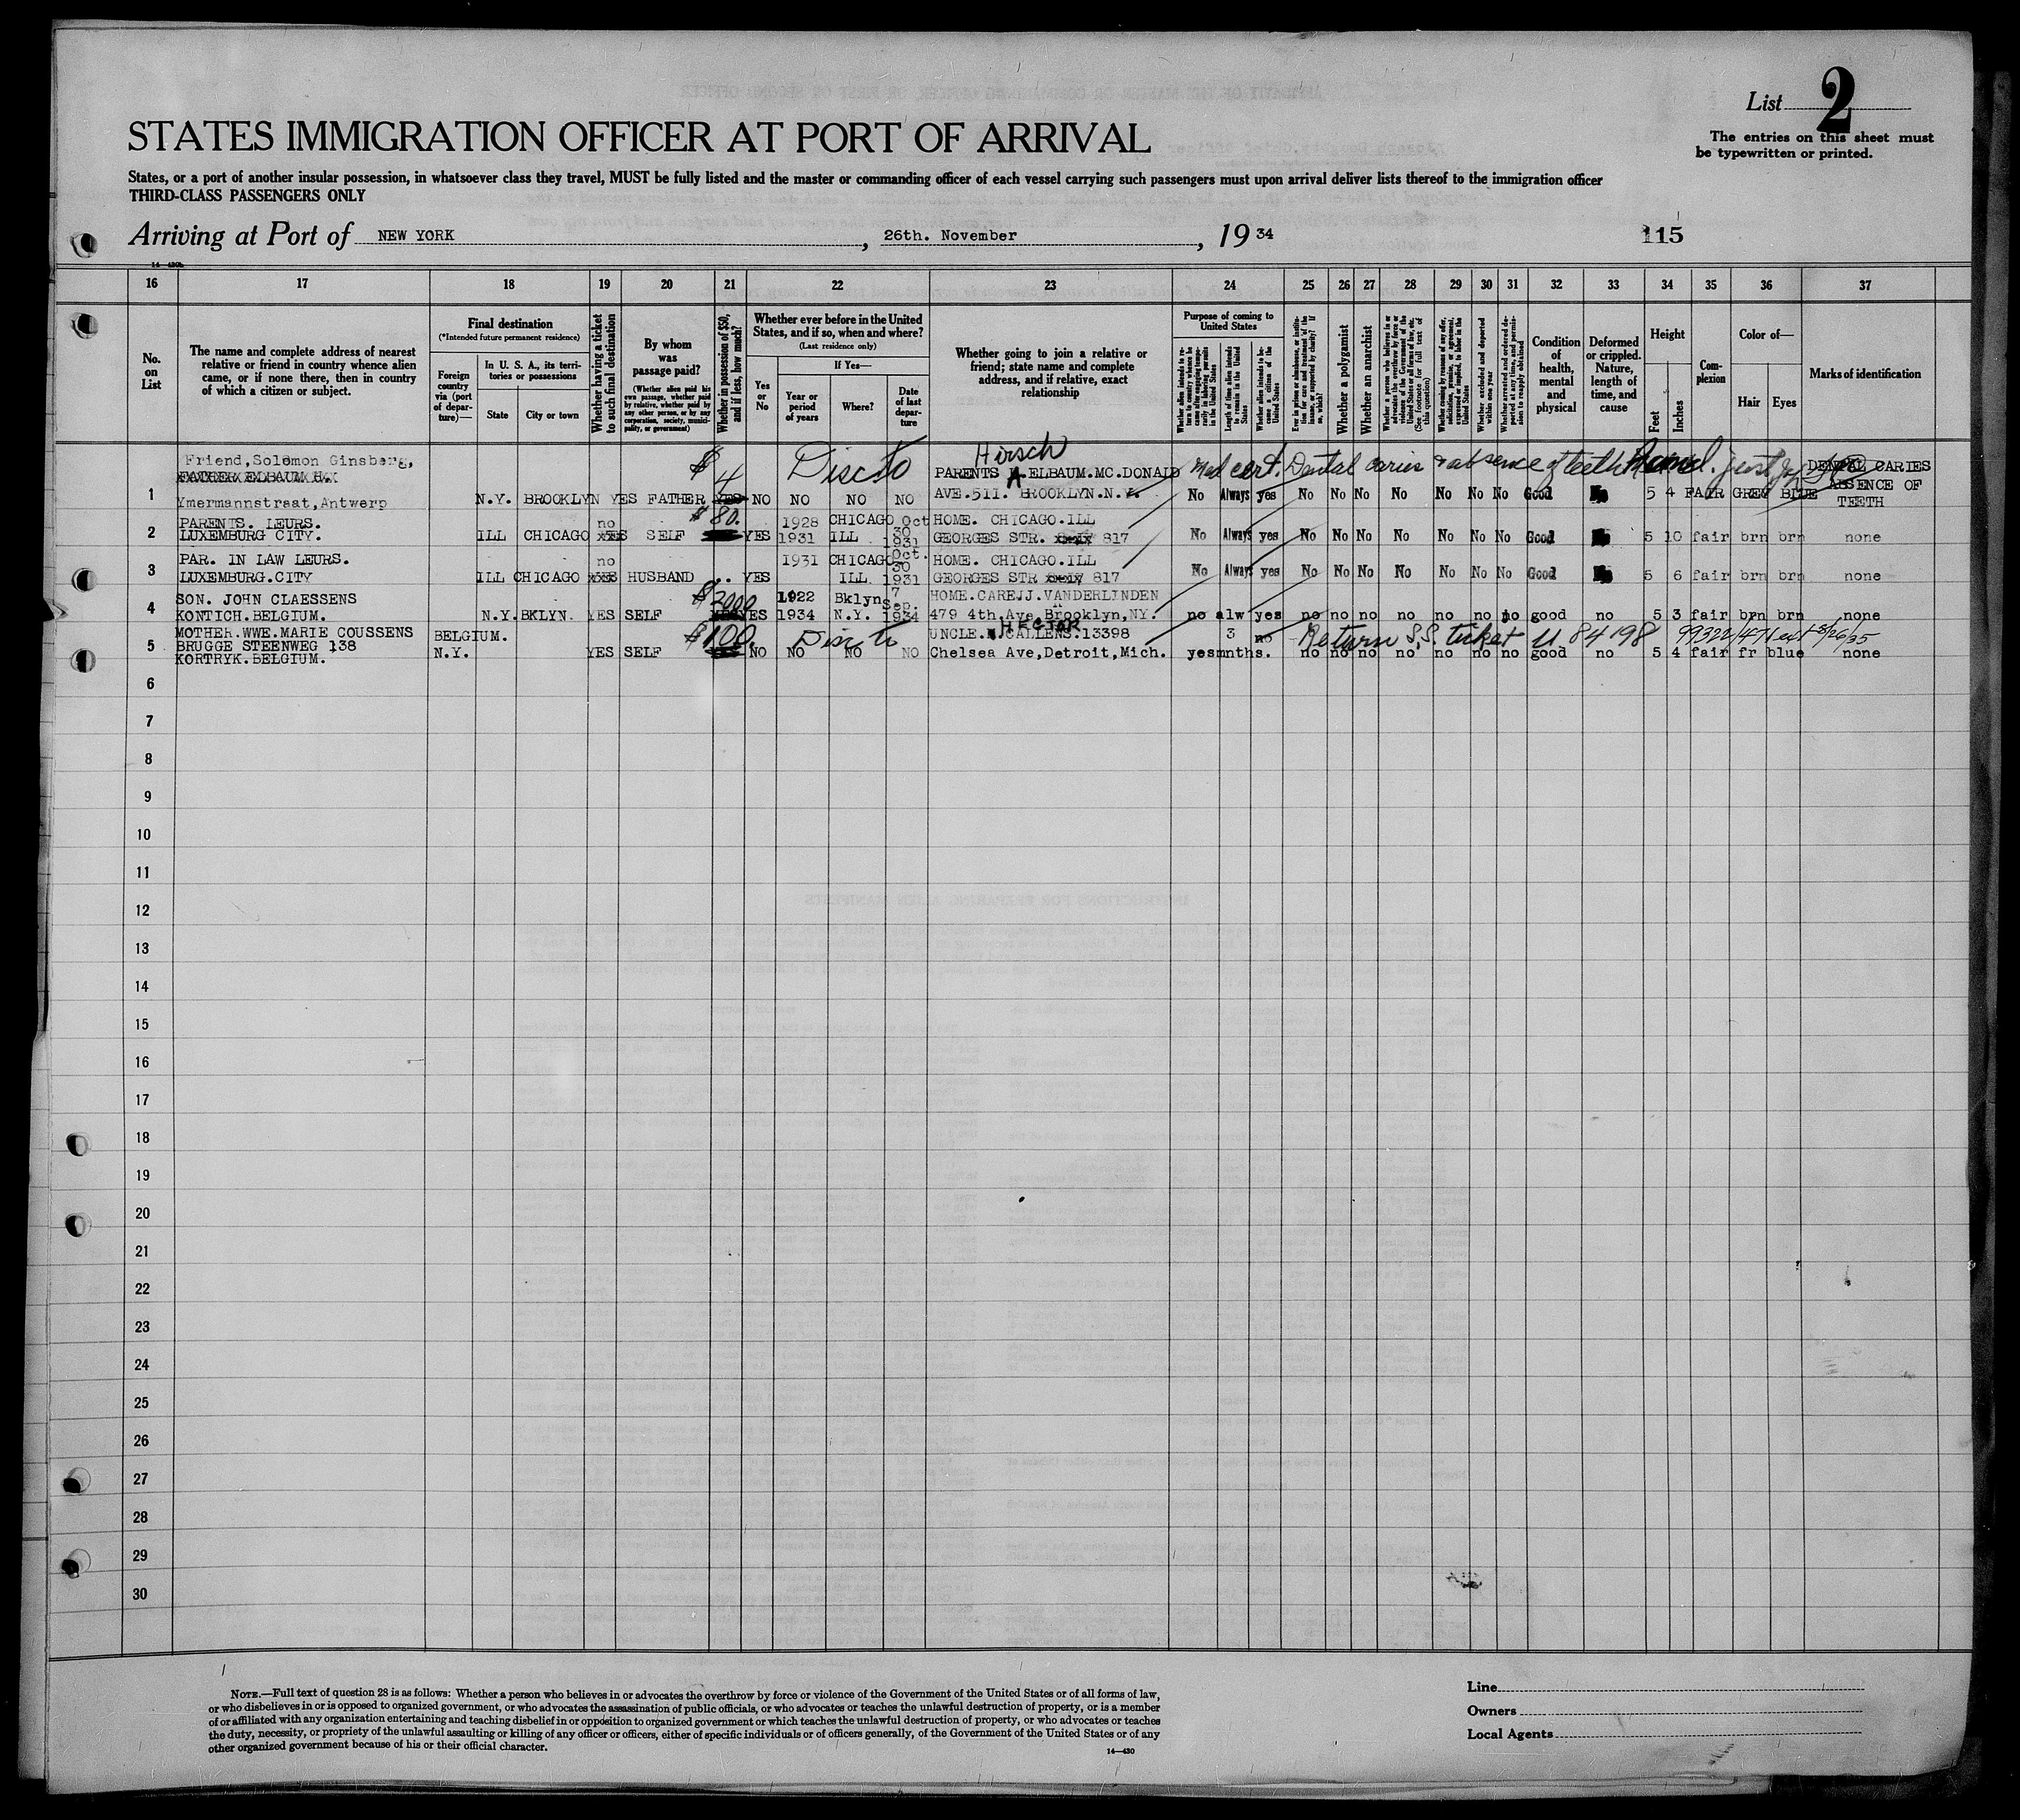 List 2
The entries on this sheet must
be typewritten or printed.
STATES IMMIGRATION OFFICER AT PORT OF ARRIVAL
States, or a port of another insular possession, in whatsoever class they travel, MUST be fully listed and the master or commanding officer of each vessel carrying such passengers must upon arrival deliver lists thereof to the immigration officer
THIRD-CLASS PASSENGERS ONLY
Arriving at Port of NEW YORK, 26th. November, 19 34
115
16 17 18 19 20 21 22 23 24 25 26 27 28 29 30 31 32 33 34 35 36 37
No. on List
The name and complete address of nearest relative or friend in country whence alien came, or if none there, then in country of which a citizen or subject.
Final destination
(*Intended future permanent residence)
Foreign country via (port of departure)—
In U. S. A., its territories or possessions
State
City or town
Whether having a ticket to such final destination
By whom was passage paid?
(Whether alien paid his own passage, whether paid by relative, whether paid by any other person, or by any corporation, society, municipality, or government)
Whether in possession of $50, and if less, how much?
Whether ever before in the United States, and if so, when and where?
(Last residence only)
Yes or No
If Yes—
Year or period of years
Where?
Date of last departure
Whether going to join a relative or friend; state name and complete address, and if relative, exact relationship
Purpose of coming to United States
Length of time alien intends to remain in the United States
Whether alien intends to become a citizen of the United States
Whether a polygamist
Whether an anarchist
Whether excluded and deported within one year
Condition of health, mental and physical
Deformed or crippled. Nature, length of time, and cause
Height
Feet
Inches
Complexion
Color of—
Hair
Eyes
Marks of identification
Friend,Solomon Ginsberg, $ 4 Disc to Hirsch Med cert. Dental caries & absence of teeth
FATHER ELBAUM H. PARENTS A ELBAUM.MC.DONALD DENTAL CARIES
1 Ymermannstraat,Antwerp N.Y. BROOKLYN YES FATHER YES NO NO NO NO AVE.511. BROOKLYN.N.Y. No Always yes No No No No No No No Good No 5 4 FAIR GREY BLUE ABSENCE OF TEETH
PARENTS. LEURS. no $ 80. 1928 CHICAGO Oct HOME. CHICAGO.ILL
2 LUXEMBURG CITY. ILL CHICAGO YES SELF YES 1931 ILL 30 1931 GEORGES STR. 817 No Always yes No No No No No No No Good 5 10 fair brn brn none
PAR. IN LAW LEURS. no 1931 CHICAGO Oct. HOME. CHICAGO.ILL
3 LUXEMBURG.CITY ILL CHICAGO YES HUSBAND .. YES ILL 30 1931 GEORGES STR 817 No Always yes No No No No No No No Good 5 6 fair brn brn none
SON. JOHN CLAESSENS $ 2000 1922 Bklyn 7 HOME.CARE.J.VANDERLINDEN
4 KONTICH.BELGIUM. N.Y. BKLYN. YES SELF YES YES 1934 N.Y. Sep. 1934 479 4th Ave Brooklyn,NY. no alw yes no no no no no no no good no 5 3 fair brn brn none
MOTHER.WWE.MARIE COUSSENS BELGIUM. $100. Disc to HECTOR UNCLE. CALLENS.13398 3 no Return S.S. ticket U 84198
5 BRUGGE STEENWEG 138 N.Y. YES SELF NO NO NO NO Chelsea Ave,Detroit,Mich. yes mnths. no no no no no no no good no 5 4 fair fr blue none
KORTRYK.BELGIUM.
6
7
8
9
10
11
12
13
14
15
16
17
18
19
20
21
22
23
24
25
26
27
28
29
30
NOTE.—Full text of question 28 is as follows: Whether a person who believes in or advocates the overthrow by force or violence of the Government of the United States or of all forms of law,
or who disbelieves in or is opposed to organized government, or who advocates the assassination of public officials, or who advocates or teaches the unlawful destruction of property, or is a member
of or affiliated with any organization entertaining and teaching disbelief in or opposition to organized government or which teaches the unlawful destruction of property, or who advocates or teaches
the duty, necessity, or propriety of the unlawful assaulting or killing of any officer or officers, either of specific individuals or of officers generally, of the Government of the United States or of any
other organized government because of his or their official character.
14—430
Line
Owners
Local Agents